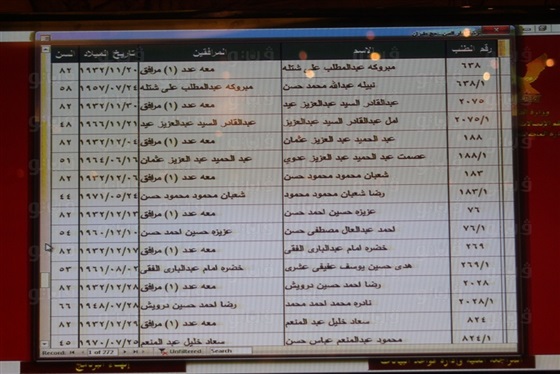 رقم الطلب الاسم المرافقين تاريخ الميلاد السن
٦٣٨ مبروكه عبدالمطلب على شتله معه عدد (١) مرافق ١٩٣٢/١١/٢٠ ٨٢
٦٣٨/١ نبيله عبدالله محمد حسن مبروكه عبدالمطلب على شتله ١٩٥٧/٠٧/٢٤ ٥٨
٢٠٧٥ عبدالقادر السيد عبدالعزيز عيد معه عدد (١) مرافق ١٩٣٢/١١/٣٠ ٨٢
٢٠٧٥/١ امل عبدالقادر السيد عبدالعزيز عبدالقادر السيد عبدالعزيز عيد ١٩٦٦/١١/٢١ ٤٨
١٨٨ عبد الحميد عبد العزيز عثمان معه عدد (١) مرافق ١٩٣٢/١٢/٠٤ ٨٢
١٨٨/١ عصمت عبدالحميد عبد العزيز عدوي عبد الحميد عبد العزيز عثمان ١٩٦٤/٠٦/١٦ ٥١
١٨٣ شعبان محمود محمود حسن معه عدد (١) مرافق ١٩٣٢/١٢/٠٦ ٨٢
١٨٣/١ رضا شعبان محمود محمود شعبان محمود محمود حسن ١٩٧١/٠٥/٢٤ ٤٤
٧٦ عزيزه حسين احمد حسن معه عدد (١) مرافق ١٩٣٢/١٢/١٣ ٨٢
٧٦/١ احمد عبدالعال مصطفى حسن عزيزه حسين احمد حسن ١٩٦٠/١٢/١٠ ٥٤
٢٦٩ خضره امام عبدالبارى الفقى معه عدد (١) مرافق ١٩٣٢/١٢/١٧ ٨٢
٢٦٩/١ هدى حسين يوسف عفيفى عشرى خضره امام عبدالبارى الفقى ١٩٦١/٠٨/٠٢ ٥٣
٢٠٢٨ رضا احمد حسين درويش معه عدد (١) مرافق ١٩٣٢/١٢/٢٨ ٨٢
٢٠٢٨/١ نادره محمد احمد محمد رضا احمد حسين درويش ١٩٤٨/٠٧/٢٨ ٦٦
٨٢٤ سعاد خليل عبد المنعم معه عدد (١) مرافق ١٩٣٢/١٢/٢٩ ٨٢
٨٢٤/١ محمود عبدالمنعم عباس حسن سعاد خليل عبد المنعم ١٩٧٠/٠٧/٢٥ ٤٥
Record: 1 of 222 Unfiltered Search